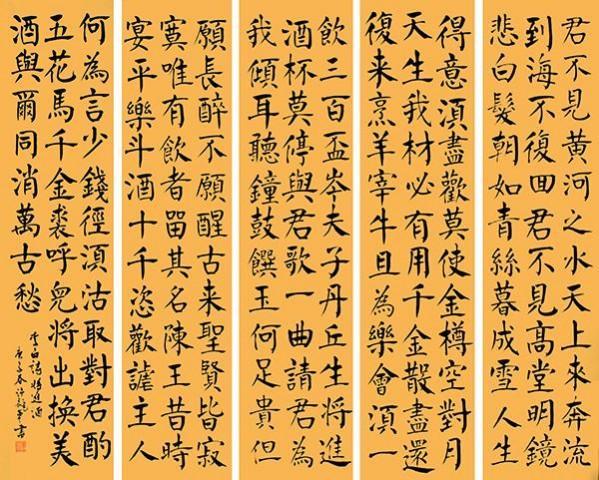 君不見黃河之水天上來奔流
到海不復回君不見高堂明鏡
悲白髮朝如青絲暮成雪人生
得意須盡歡莫使金樽空對月
天生我材必有用千金散盡還
復来烹羊宰牛且為樂會須一
飲三百盃岑夫子丹丘生將進
酒杯莫停與君歌一曲請君為
我傾耳聽鐘鼓饌玉何足貴但
願長醉不願醒古来聖賢皆寂
寞唯有飲者留其名陳王昔時
宴平樂斗酒十千恣歡謔主人
何為言少錢徑須沽取對君酌
五花馬千金裘呼兒將出換美
酒與爾同消萬古愁
李白詩將進酒
庚子春書